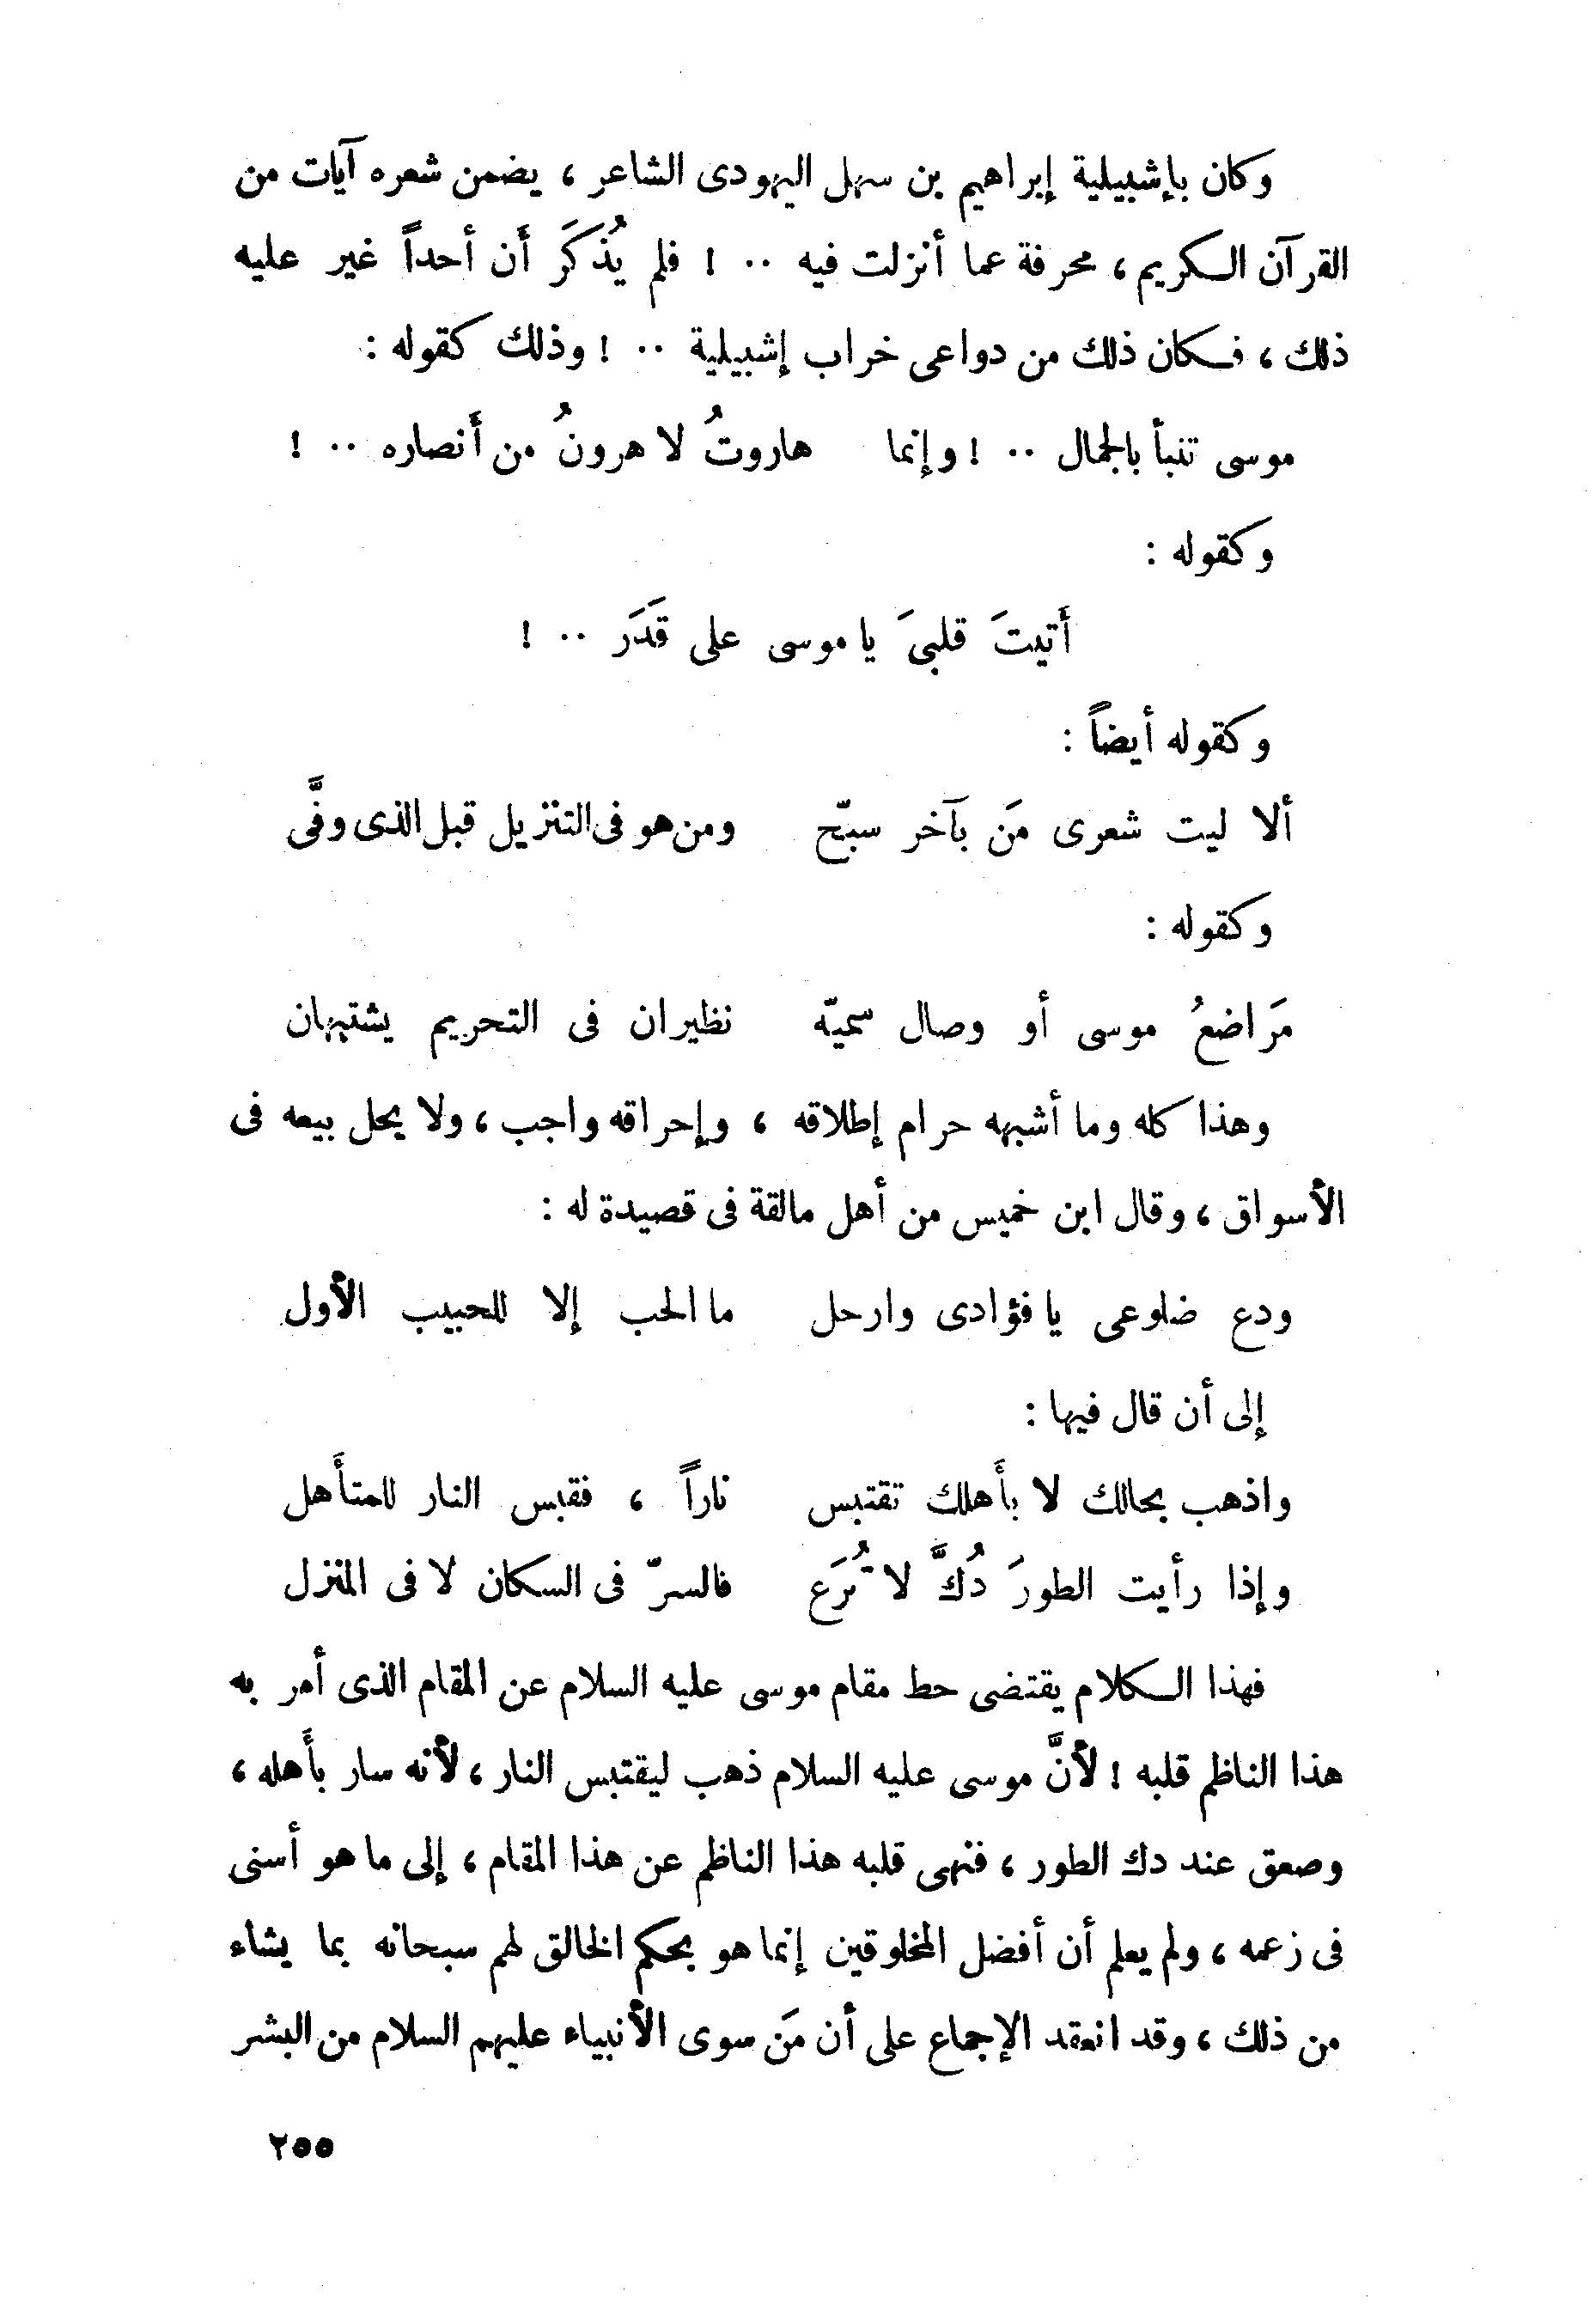 وكان بإشبيلية إبراهيم بن سهل اليهودى الشاعر ، يضمن شعره آيات من
القرآن الكريم ، محرفة عما أنزلت فيه .. ! فلم يُذكَر أَن أحداً غير عليه
ذلك ، فكان ذلك من دواعى خراب إشبيلية .. ! وذلك كقوله :
موسى تنبأ بالجمال .. ! وإنما هاروتُ لا هرونُ من أَنصاره .. !
وكقوله :
أَتيتَ قلبىَ يا موسى على قَدَر .. !
وكقوله أيضاً :
ألا ليت شعرى مَن بآخر سبّح ومن هو فى التنزيل قبل الذى وفَّى
وكقوله :
مَراضعُ موسى أو وصال سميّه نظيران فى التحريم يشتبهان
وهذا كله وما أشبهه حرام إطلاقه ، وإحراقه واجب ، ولا يحل بيعه فى
الأسواق ، وقال ابن خميس من أهل مالقة فى قصيدة له :
ودع ضلوعى يا فؤادى وارحل ما الحب إلا للحبيب الأول
إلى أن قال فيها :
واذهب بحالك لا بأَهلك تقتبس ناراً ، فقبس النار للمتأَهل
وإذا رأيت الطورَ دُكَّ لا تُرَع فالسرّ فى السكان لا فى المنزل
فهذا الكلام يقتضى حط مقام موسى عليه السلام عن المقام الذى أمر به
هذا الناظم قلبه ! لأنَّ موسى عليه السلام ذهب ليقتبس النار ، لأنه سار بأَهله ،
وصعق عند دك الطور ، فنهى قلبه هذا الناظم عن هذا المقام ، إلى ما هو أسنى
فى زعمه ، ولم يعلم أن أفضل المخلوقين إنما هو بحكم الخالق لهم سبحانه بما يشاء
من ذلك ، وقد انعقد الإجماع على أن مَن سوى الأنبياء عليهم السلام من البشر
٢٥٥